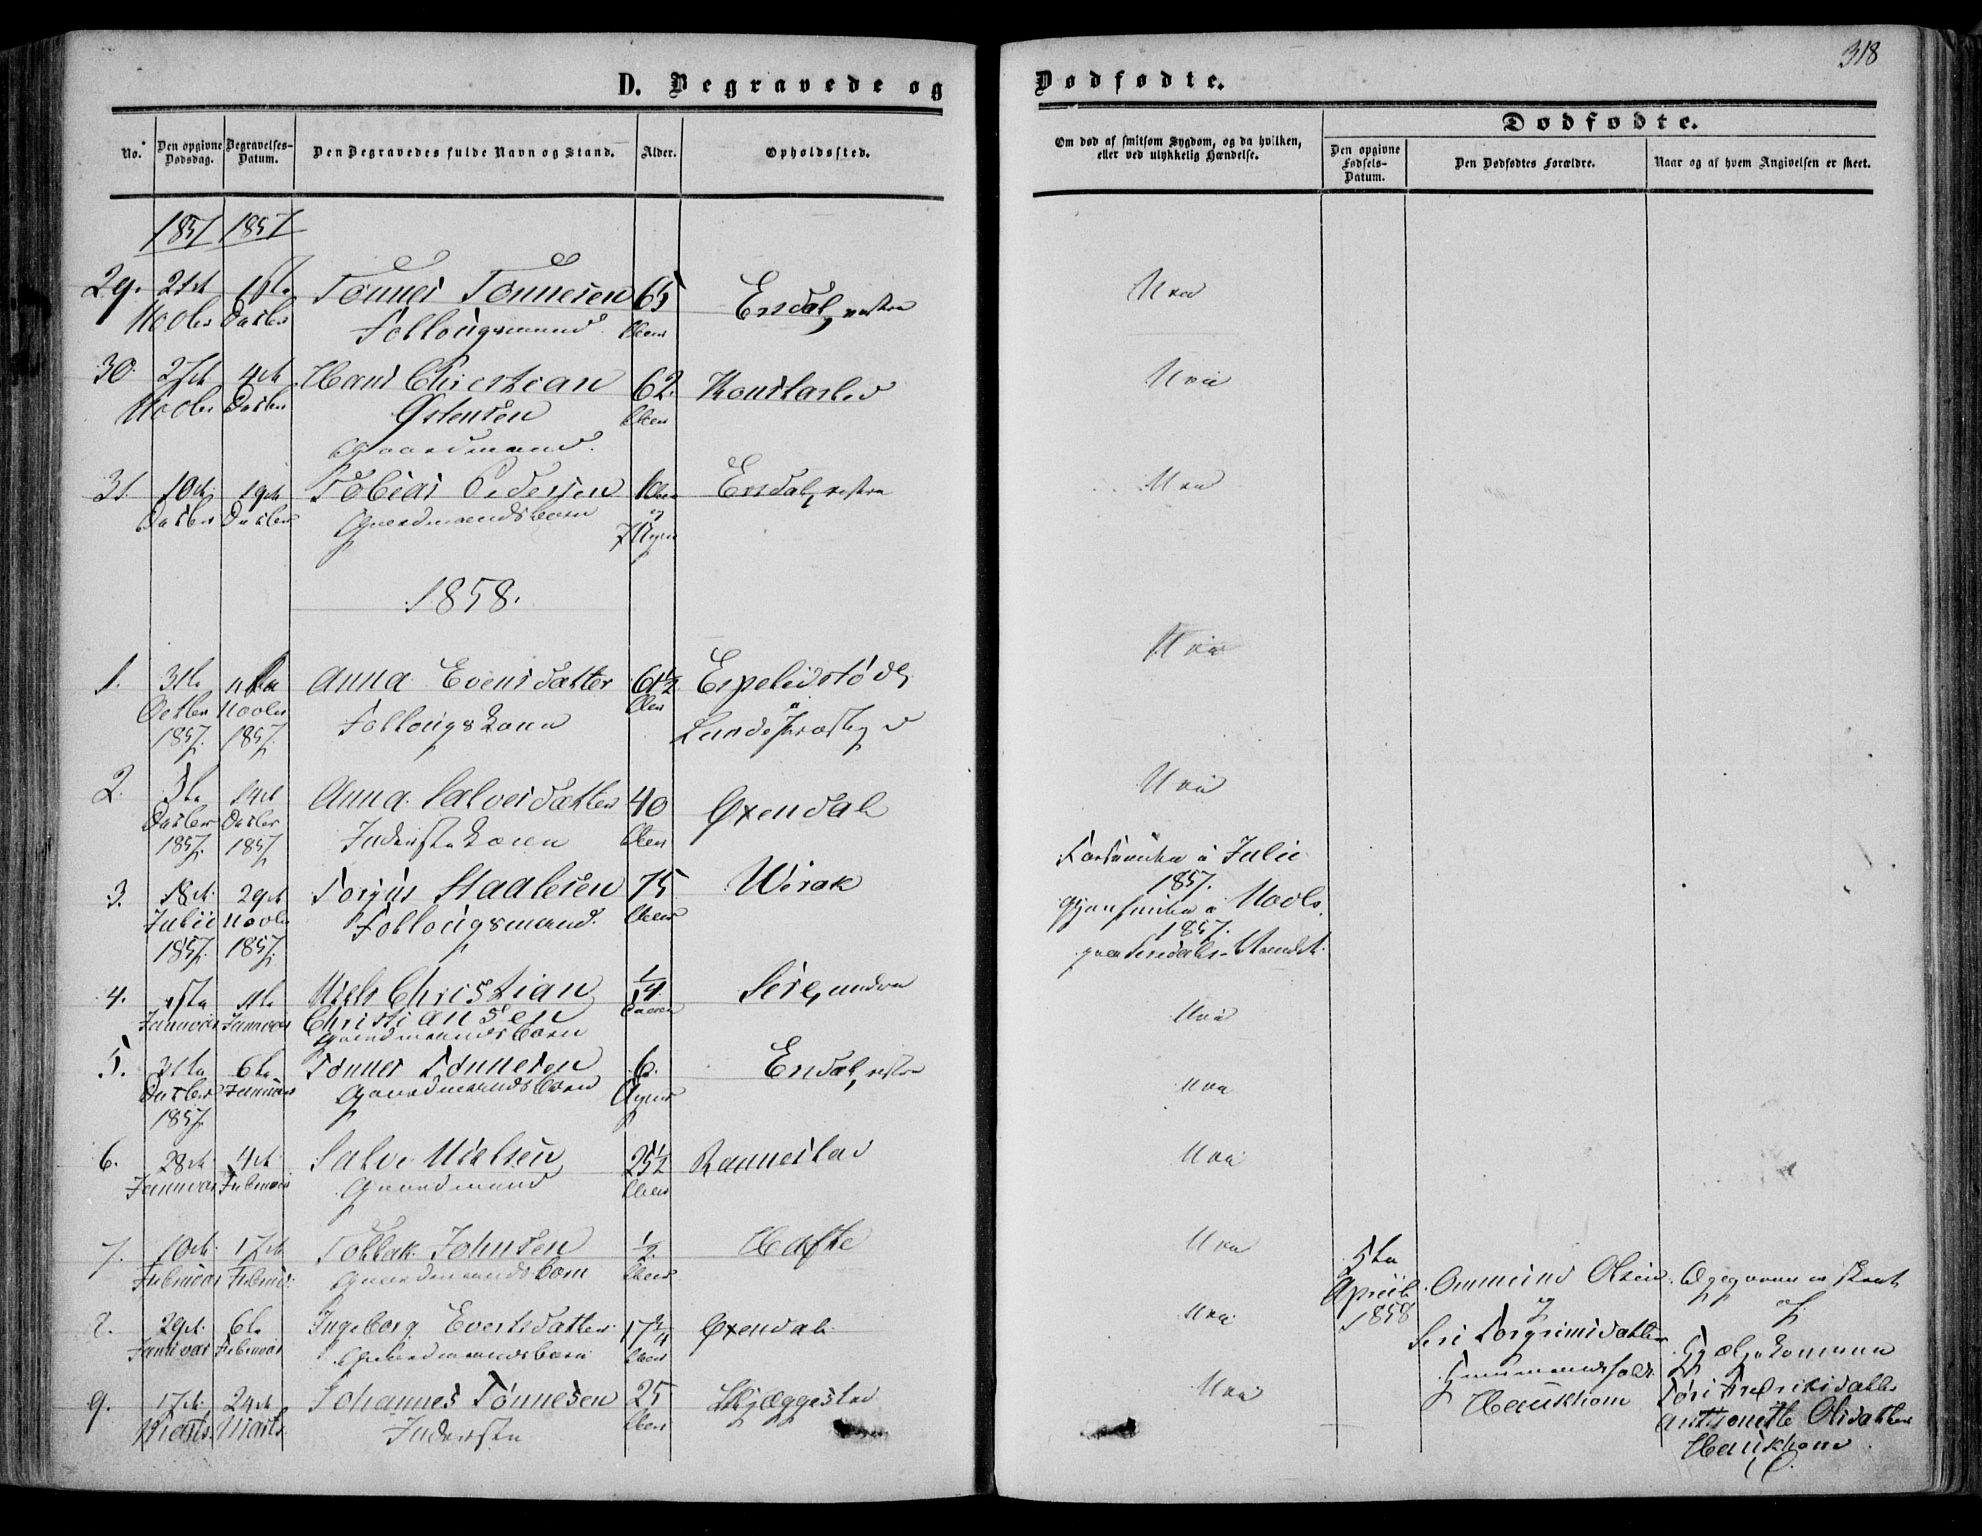 318
D. Begravede og Dødfødte.
No.
Den opgivne Dødsdag.
Begravelses-Datum.
Den Begravedes fulde Navn og Stand.
Alder.
Opholdssted.
Om død af smitsom Sygdom, og da hvilken,
eller ved ulykkelig Hændelse.
Dødfødte.
Den opgivne Fødsels-Datum.
Den Dødfødtes Forældre.
Naar og af hvem Angivelsen er skeet.
1857 1857
29. 21de 1ste Tønnes Tønnesen 65 Ersdal, vestre Nei
Novbr Decbr Follougsmand Aar
30. 27de 4de Hans Christian 62 Konstaslid Nei
Novbr Decbr Østensen Aar
Gaardmand.
31. 10de 19de Tobias Pedersen 1 Aar Ersdal, vestre Nei
Decbr Decbr Gaardmandsbarn og
7 Uger
1858.
1. 31te Anna Evensdatter 61½ Espelidstødl Nei
Octbr Novbr Follougskone Aar i
1857. 1857. Lunde Præstegjeld
2. 5te 14de Anna Salvesdatter 40 Oxendal Nei
Decbr Decbr Inderstekone Aar
1857. 1857
3. 18de 29de Torjus Staalesen 75 Wirak Forsvunden i Julii
Julii Novbr Follougsmand. Aar 1857.
1857. 1857. Gjenfunden i Novbr.
1857.
4. 1ste Niels Christian ¼ Sire, nedre Nei
Januar Januar Christiansen
Gaardmandsbarn
5. 31te 6te Tønnes Tønnesen 6 Ersdal, vestre Nei
Decbr Januar Gaardmandsbarn Uger
1857.
6. 28de 4de Salve Nielsen 25½ Rannestad Nei
Januar Februar Gaardmand Aar
7. 10de 17de Tollak Johnsen ½ Hafte Nei
Februar Februar Gaardmandsbarn Aar
8. 29de 6te Ingeborg Evertsdatter 17¾ Oxendal Nei
Januar Februar Gaardmandsbarn Aar
9. 17de 24de Johannes Tønnesen 25 Skjæggestad Nei
Marts Marts Inderste Aar
5te
April
1858
Ommund Olsen
og
Siri Torgrimsdatter
Gaardmandsfolk
Haukhom
Opgaven er skeet
af
Hjælpekonerne
Tøri Fredriksdatter
Anthonette Olsdatter
Haukhom